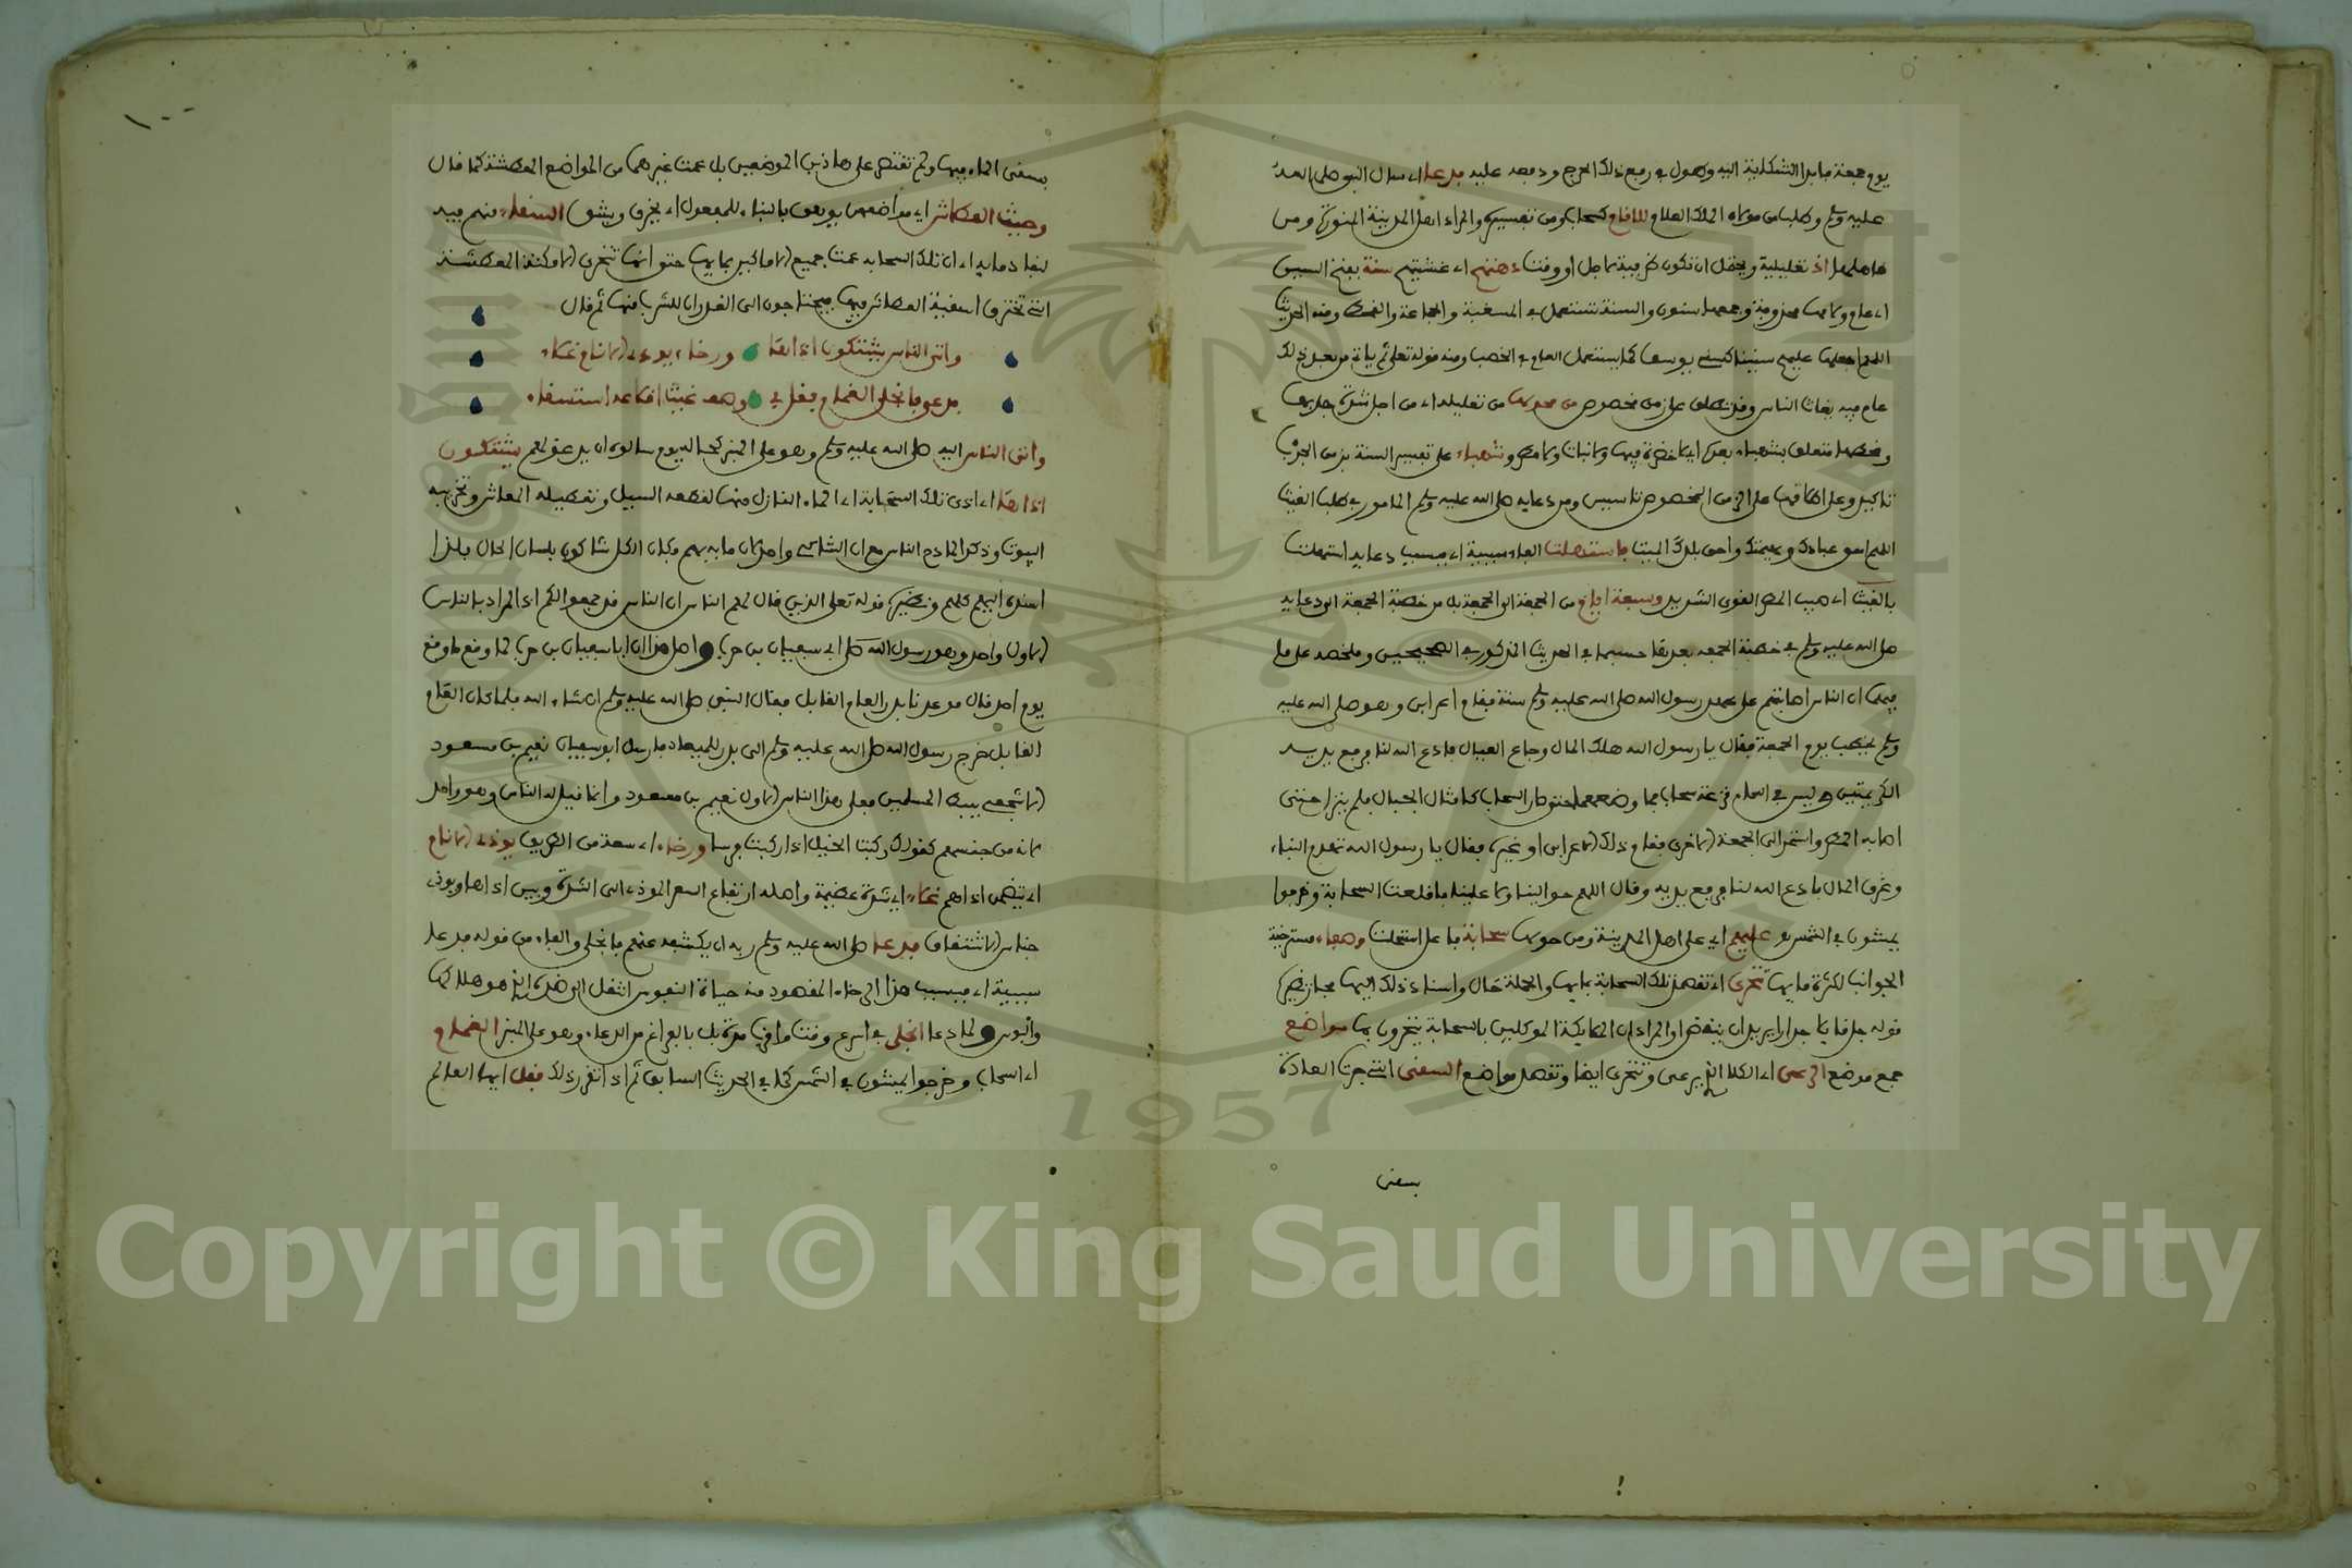 يوم جمعة ما بدا الشكاية اليه وهول في رفع ذلك الحرج ودفعه عليه فدعا اي سال النبي صلى الله
عليه وسلم وطلب من مولاه الملك العلام للانام كسحاب ومن تفسيرية والمراد اهل المدينة المنورة ومن
اذ تعليلية ويحتمل ان تكون ظرفية او وقت دهمتهم اي غشيتهم سنة بفتح السين
اي عام ولامها محذوفة وجمعها سنون والسنة تستعمل في المسغبة والمجاعة والقحط ومنه الحديث
اللهم اجعلها عليهم سنينا كسني يوسف كما يستعمل العام في الخصب ومنه قوله تعالى ثم ياتي من بعد ذلك
عام فيه يغاث الناس وقد تطلق على زمن مخصوص من محولها من تعليلية اي من اجل شدة جدبها
وقحطها متعلق بشهباء بمعنى لا خضرة فيها ولا نبات ولا مطر وشهباء على تفسير السنة بزمن الجدب
تاكيد وعلى اطلاقها على الزمن المخصوص تاسيس ومن دعايه صلى الله عليه وسلم الماثور في طلب الغيث
اللهم اسق عبادك وبهيمتك واحي بلدك الميت فاستهلت الفاء سببية اي فبسبب دعايه استهلت
بالغيث اي صبب المطر القوي الشديد وسبعة ايام من الجمعة الى الجمعة بل من خطبة الجمعة الى دعايه
صلى الله عليه وسلم في خطبة الجمعة بعدها حسبما في الحديث المذكور في الصحيحين وملخصه على ما
فيهما ان الناس اصابتهم على عهد رسول الله صلى الله عليه وسلم سنة فقام اعرابي وهو صلى الله عليه
وسلم يخطب يوم الجمعة فقال يا رسول الله هلك المال وجاع العيال فادع الله لنا فرفع يديه
الكريمتين وليس في السماء قزعة سحاب فما وضعهما حتى صار السحاب كامثال الجبال فلم ينزل حتى
اصابه المطر واستمر الى الجمعة الاخرى فقام ذلك الاعرابي او غيره فقال يا رسول الله تهدم البناء
وغرق المال فادع الله لنا فرفع يديه وقال اللهم حوالينا ولا علينا فاقلعت السحابة وخرجوا
يمشون في الشمس عليهم اي على اهل المدينة ومن حولها سحابة فاعل استهلت وطفاء مسترخية
الجوانب لكثرة مايها تتحرى اي تقصد تلك السحابة بمايها والجملة حال واسناد ذلك اليها مجاز نظير
قوله جل وعلا جدارا يريد ان ينقض او المراد ان الملايكة الموكلين بالسحابة يتحرون بها مواضع
جمع موضع الرعي اي الكلا الذي يرعى وتتحرى ايضا وتقصد مواضع السقي التي جرت العادة
بسقي
١٠٠
بسقي الماء فيها ولم تقتصر على هاذين الموضعين بل عمت غيرهما من المواضع المعطشة كما قال
وحيث العطاش اي مواضعهم يوهى بالبناء للمفعول اي يخرق ويشق السقاء منهم فيه
لنفاد مايه اي ان تلك السحابة عمت جميع الاماكن بمايها حتى انها تتحرى الامكنة المعطشة
التي تخترق اسقية العطاش فيها فيحتاجون الى الغدران للشرب منها ثم قال
واتى الناس يشتكون اذاها ورخاء يوذي الانام غلاء
فدعا فانجلى الغمام فقل في وصف غيث اقلاعه استسقاء
واتى الناس اليه صلى الله عليه وسلم وهو على المنبر سالوه ان يدعو لهم يشتكون
اذاها اي اذى تلك السحابة اي الماء النازل منها لقطعه السبيل وتعطيله المعاش وتخريبه
البيوت وذكر الناس مع ان الشاكي واحد لان ما به بهم فكان الكل شاكون بلسان الحال فلذا
اسنده اليهم كلهم ونظيره قوله تعالى الذين قال لهم الناس ان الناس قد جمعوا لكم اذ المراد بالناس
الاول واحد وهو رسول ابي سفيان بن حرب واصل هذا ان ابا سفيان بن حرب لما وقع ما وقع
يوم احد قال موعدنا بدر العام القابل فقال النبي صلى الله عليه وسلم ان شاء الله فلما كان العام
القابل خرج رسول الله صلى الله عليه وسلم الى بدر للميعاد فارسل ابو سفيان نعيم بن مسعود
الاشجعي يثبط المسلمين فعلى هذا الناس الاول نعيم بن مسعود وانما قيل له الناس وهو واحد
لانه من جنسهم كقولك ركبت الخيل اذا ركبت فرسا ورخاء اي سعة من الطريق يوذي الانام
اي يتضمن اذاهم غلاء اي شدة عظيمة واصله ارتفاع السعر الموذي الى الشدة وبين اذاها ويوذي
جناس الاشتقاق فدعا صلى الله عليه وسلم ربه ان يكشفه عنهم فانجلى والفاء من قوله فدعا
سببية اي فبسبب هذا الرخاء المقصود منه حياة النفوس انتقل الى ضده الذي هو هلاكها
والبوس ولما دعا انجلى في اسرع وقت بالفراغ من الدعاء وهو على المنبر الغمام
اي السحاب وخرجوا يمشون في الشمس كما في الحديث السابق ثم اذا تقرر ذلك فقل ايها العالم